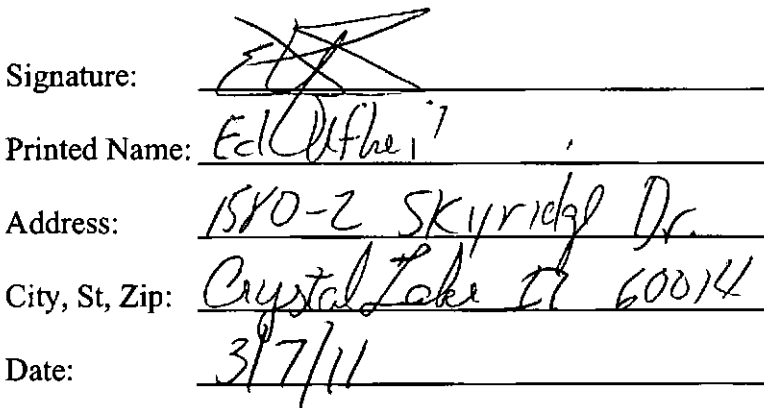 Signature:
Printed Name: Ed
Address: 1580-2 Skyridge Dr.
City, St, Zip: Crystal Lake Il 60014
Date: 3/7/11